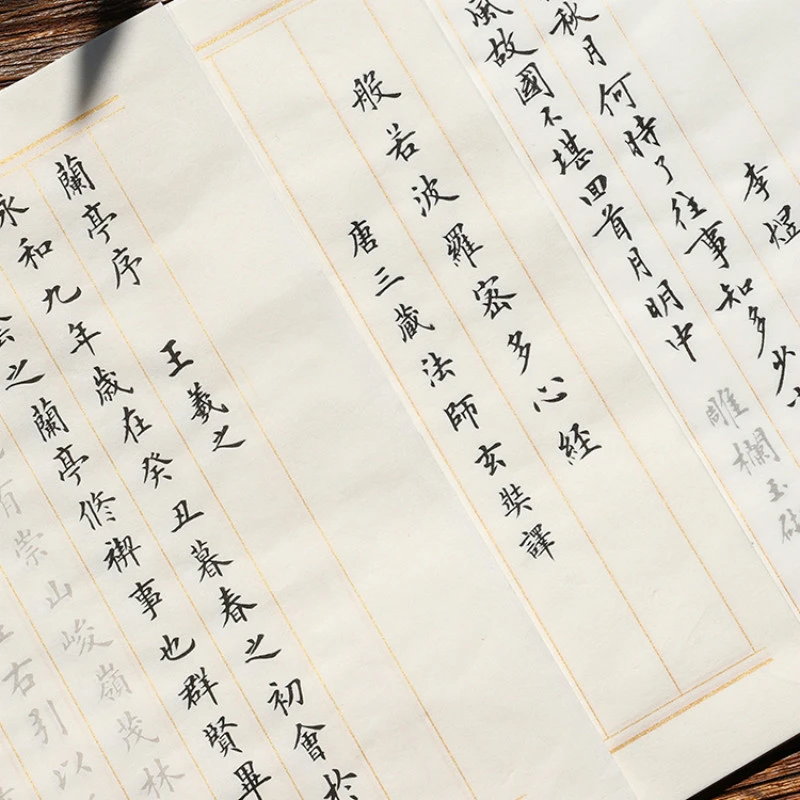 李煜
秋月何時了往事知多少小
風故國不堪回首月明中雕欄玉砌
般若波羅密多心経
唐三藏法師玄奘譯
蘭亭序 王羲之
永和九年歲在癸丑暮春之初會於
之蘭亭修禊事也群賢畢
有崇山峻嶺茂林
右引以